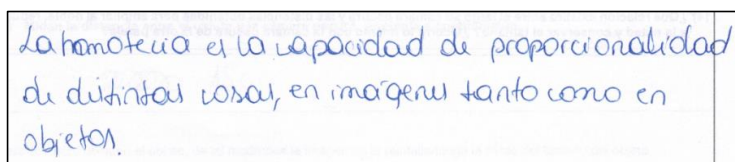 La homotecia es la capacidad de proporcionalidad
de distintas cosas, en imágenes tanto como en
objetos.